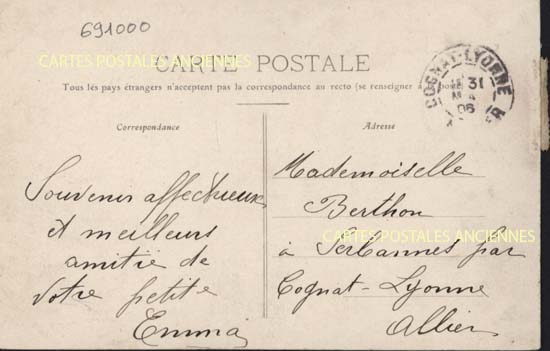 691000
CARTES POSTALES ANCIENNES
CARTE POSTALE
Tous les pays étrangers n'acceptent pas la correspondance au recto (se renseigner à la poste)
COGNAT-LYONNE
31
06
Correspondance
Adresse
Souvenir affectueux
et meilleurs
amitié de
votre petite
Emma
Mademoiselle
Berthon
CARTES POSTALES ANCIENNES
à Serbannes par
Cognat-Lyonne
Allier